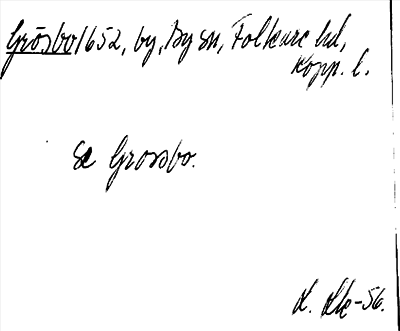 Grösbo 1652, by, By sn, Folkare hd,
Kopp. l.
Se Grossbo.